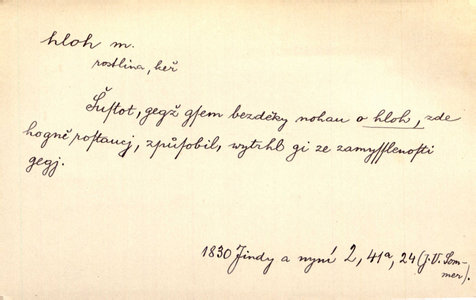 hloh m.
rostlina, keř
Šustot, gegž gsem bezděky nohau o hloh, zde
hogně rostaucj, způsobil, wytrhl gi ze zamyšllenosti
gegj.
1830 Jindy a nyní 2, 41a, 24 (J. V. Som-
mer).